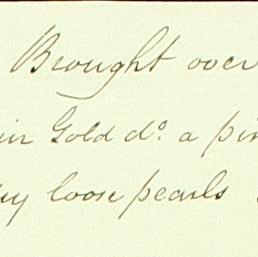 Brought over
in Gold do. a pin
loose pearls